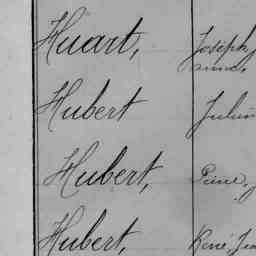 Huart, Joseph
Hubert Julien
Hubert,
Hubert, René, Jean